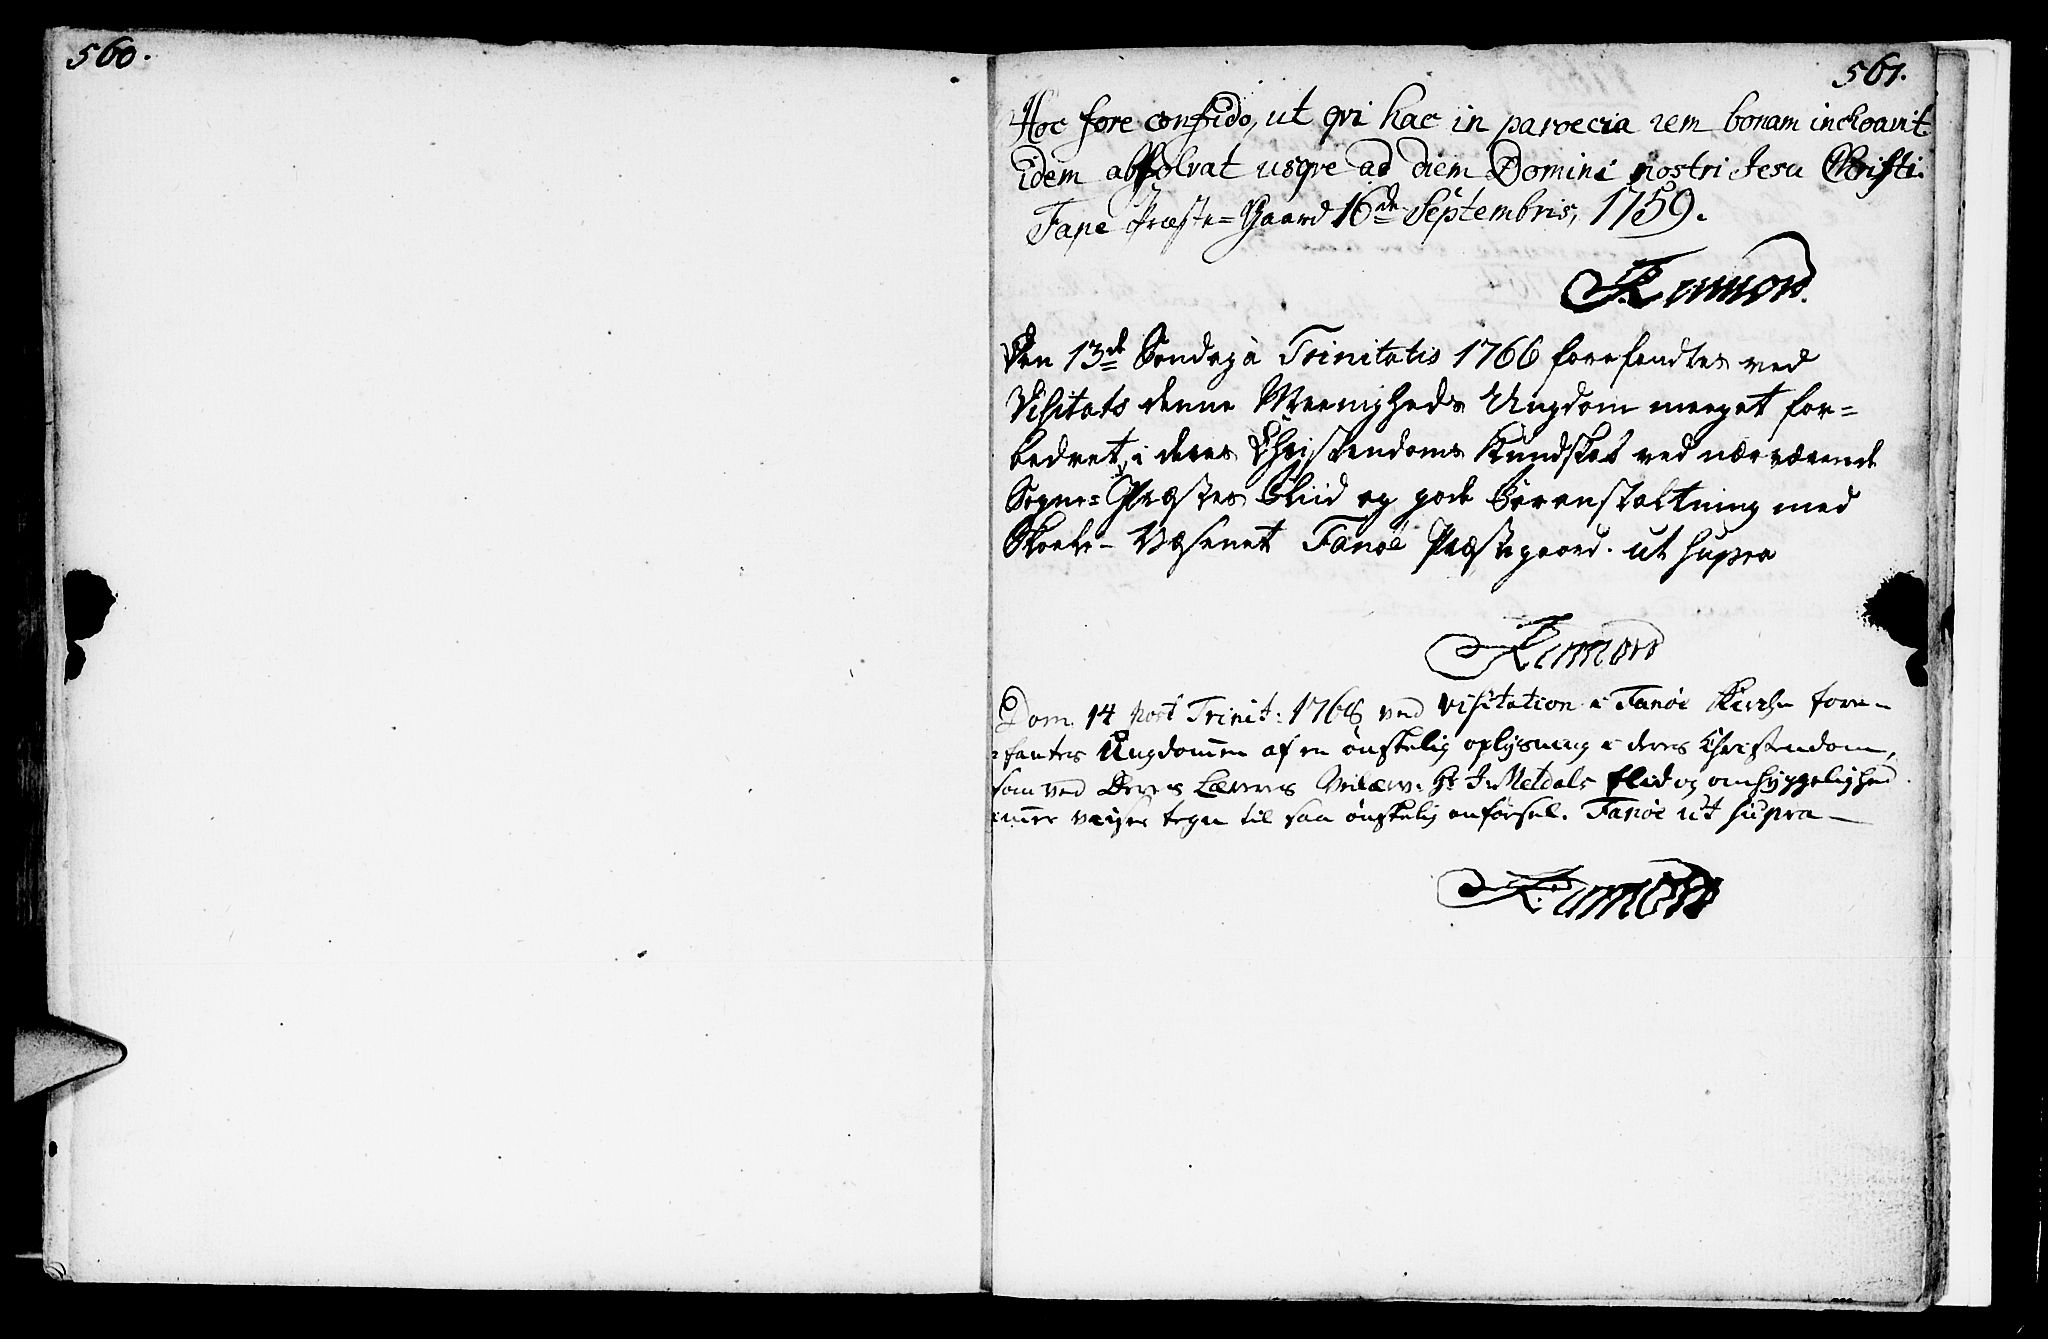 560.
561.
Hoc fore confido, ut qvi hac in paroecia rem bonam inchoavit
idem absolvat usqve ad diem Domini nostri Jesu Christi.
Fane Præste-Gaard 16de Septembris, 1759.
Rumord.
Den 13de Søndag à Trinitatis 1766 forefandtes ved
Visitats denne Meenigheds Ungdom meeget for=
bedret i deres Christendoms Kundskab ved nærværende
Sogne=Præstes Fliid og gode Foranstaltning med
Skole-Væsenet Fanöe Præstegaard. ut supra
Rumord
Dom. 14 post Trinit: 1768 ved visitation i Fanöe Kirche fore-
fantes Ungdommen af en ønskelig oplysning i deres Christendom,
som ved Deres Læreres Hr J. Metdals flid og omhyggelighed
viiser tegn til saa ønskelig anförsel. Fanöe ut supra
Rumord